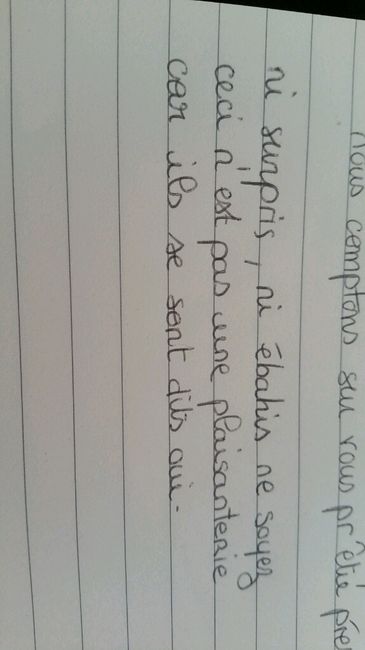 nous comptons sur vous pr être
ni surpris, ni ébahis ne soyez
ceci n'est pas une plaisanterie
car ils se sont dits oui.